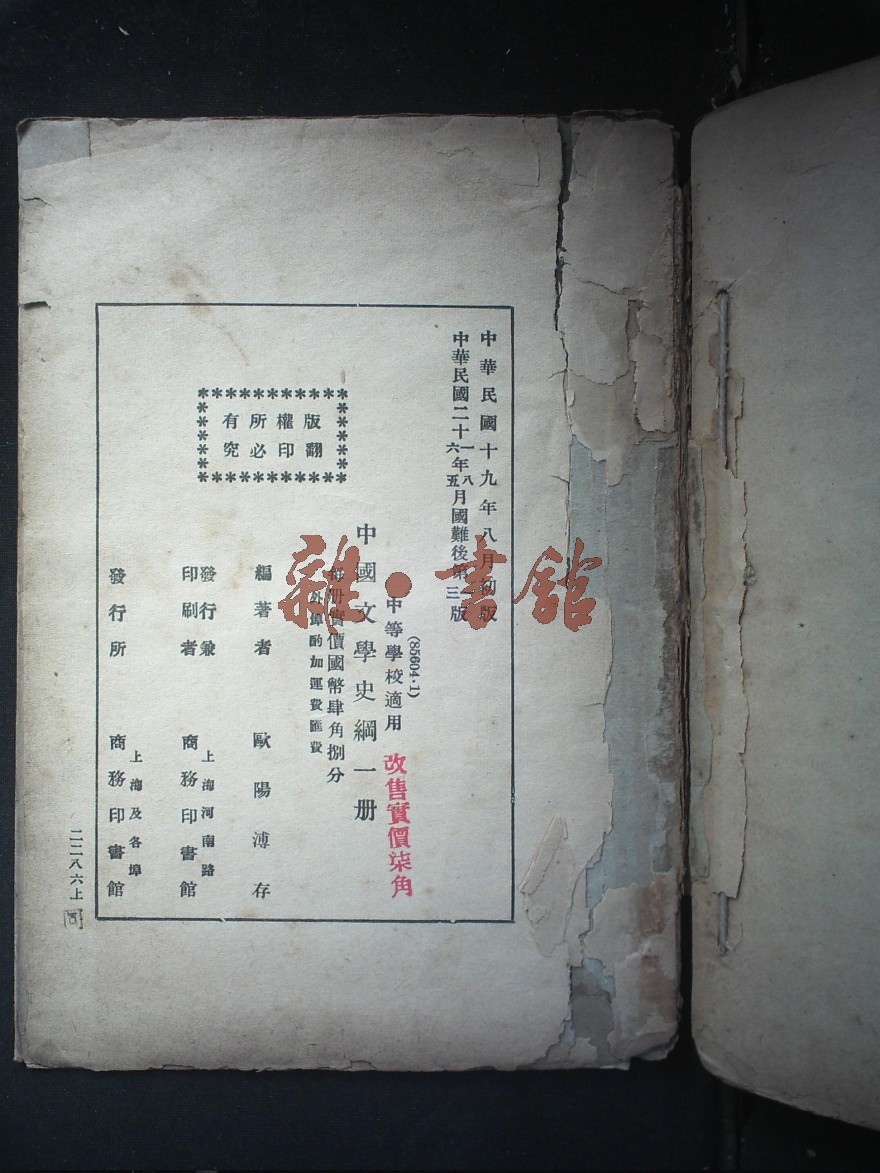 中華民國十九年八月初版
中華民國二十一年八月國難後第三版
六五
(85604·1)
中等學校適用
改售實價柒角
中國文學史綱一册
每册實價國幣肆角捌分
外埠酌加運費匯費
版權所有
翻印必究
編著者 歐陽溥存
發行兼印刷者 上海河南路 商務印書館
發行所 上海及各埠 商務印書館
二二八六上
雜·書館